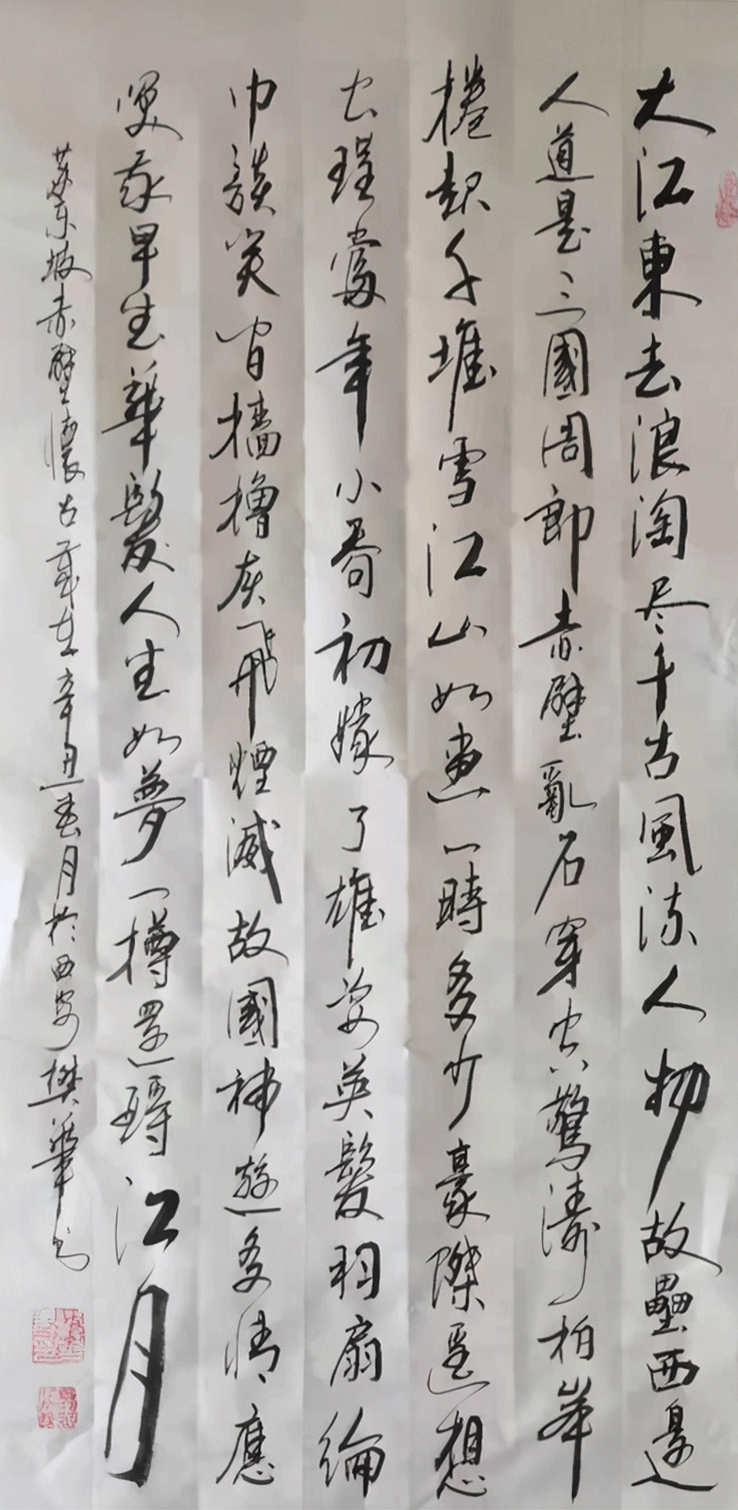 大江東去浪淘尽千古風流人物故壘西邊
人道是三國周郎赤壁亂石穿空驚濤拍岸
捲起千堆雪江山如畫一時多少豪傑遥想
公瑾當年小喬初嫁了雄姿英發羽扇綸
巾談笑间檣櫓灰飛煙滅故國神遊多情應
笑我早生華髮人生如夢一樽還酹江月
蘇東坡赤壁懷古歲在辛丑春月於西安樊華书